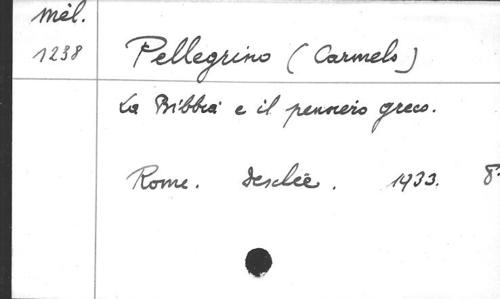 Mél.
1238
Pellegrino (Carmelo)
La Bibbia e il pensiero greco.
Rome. Desclée. 1933. 8°